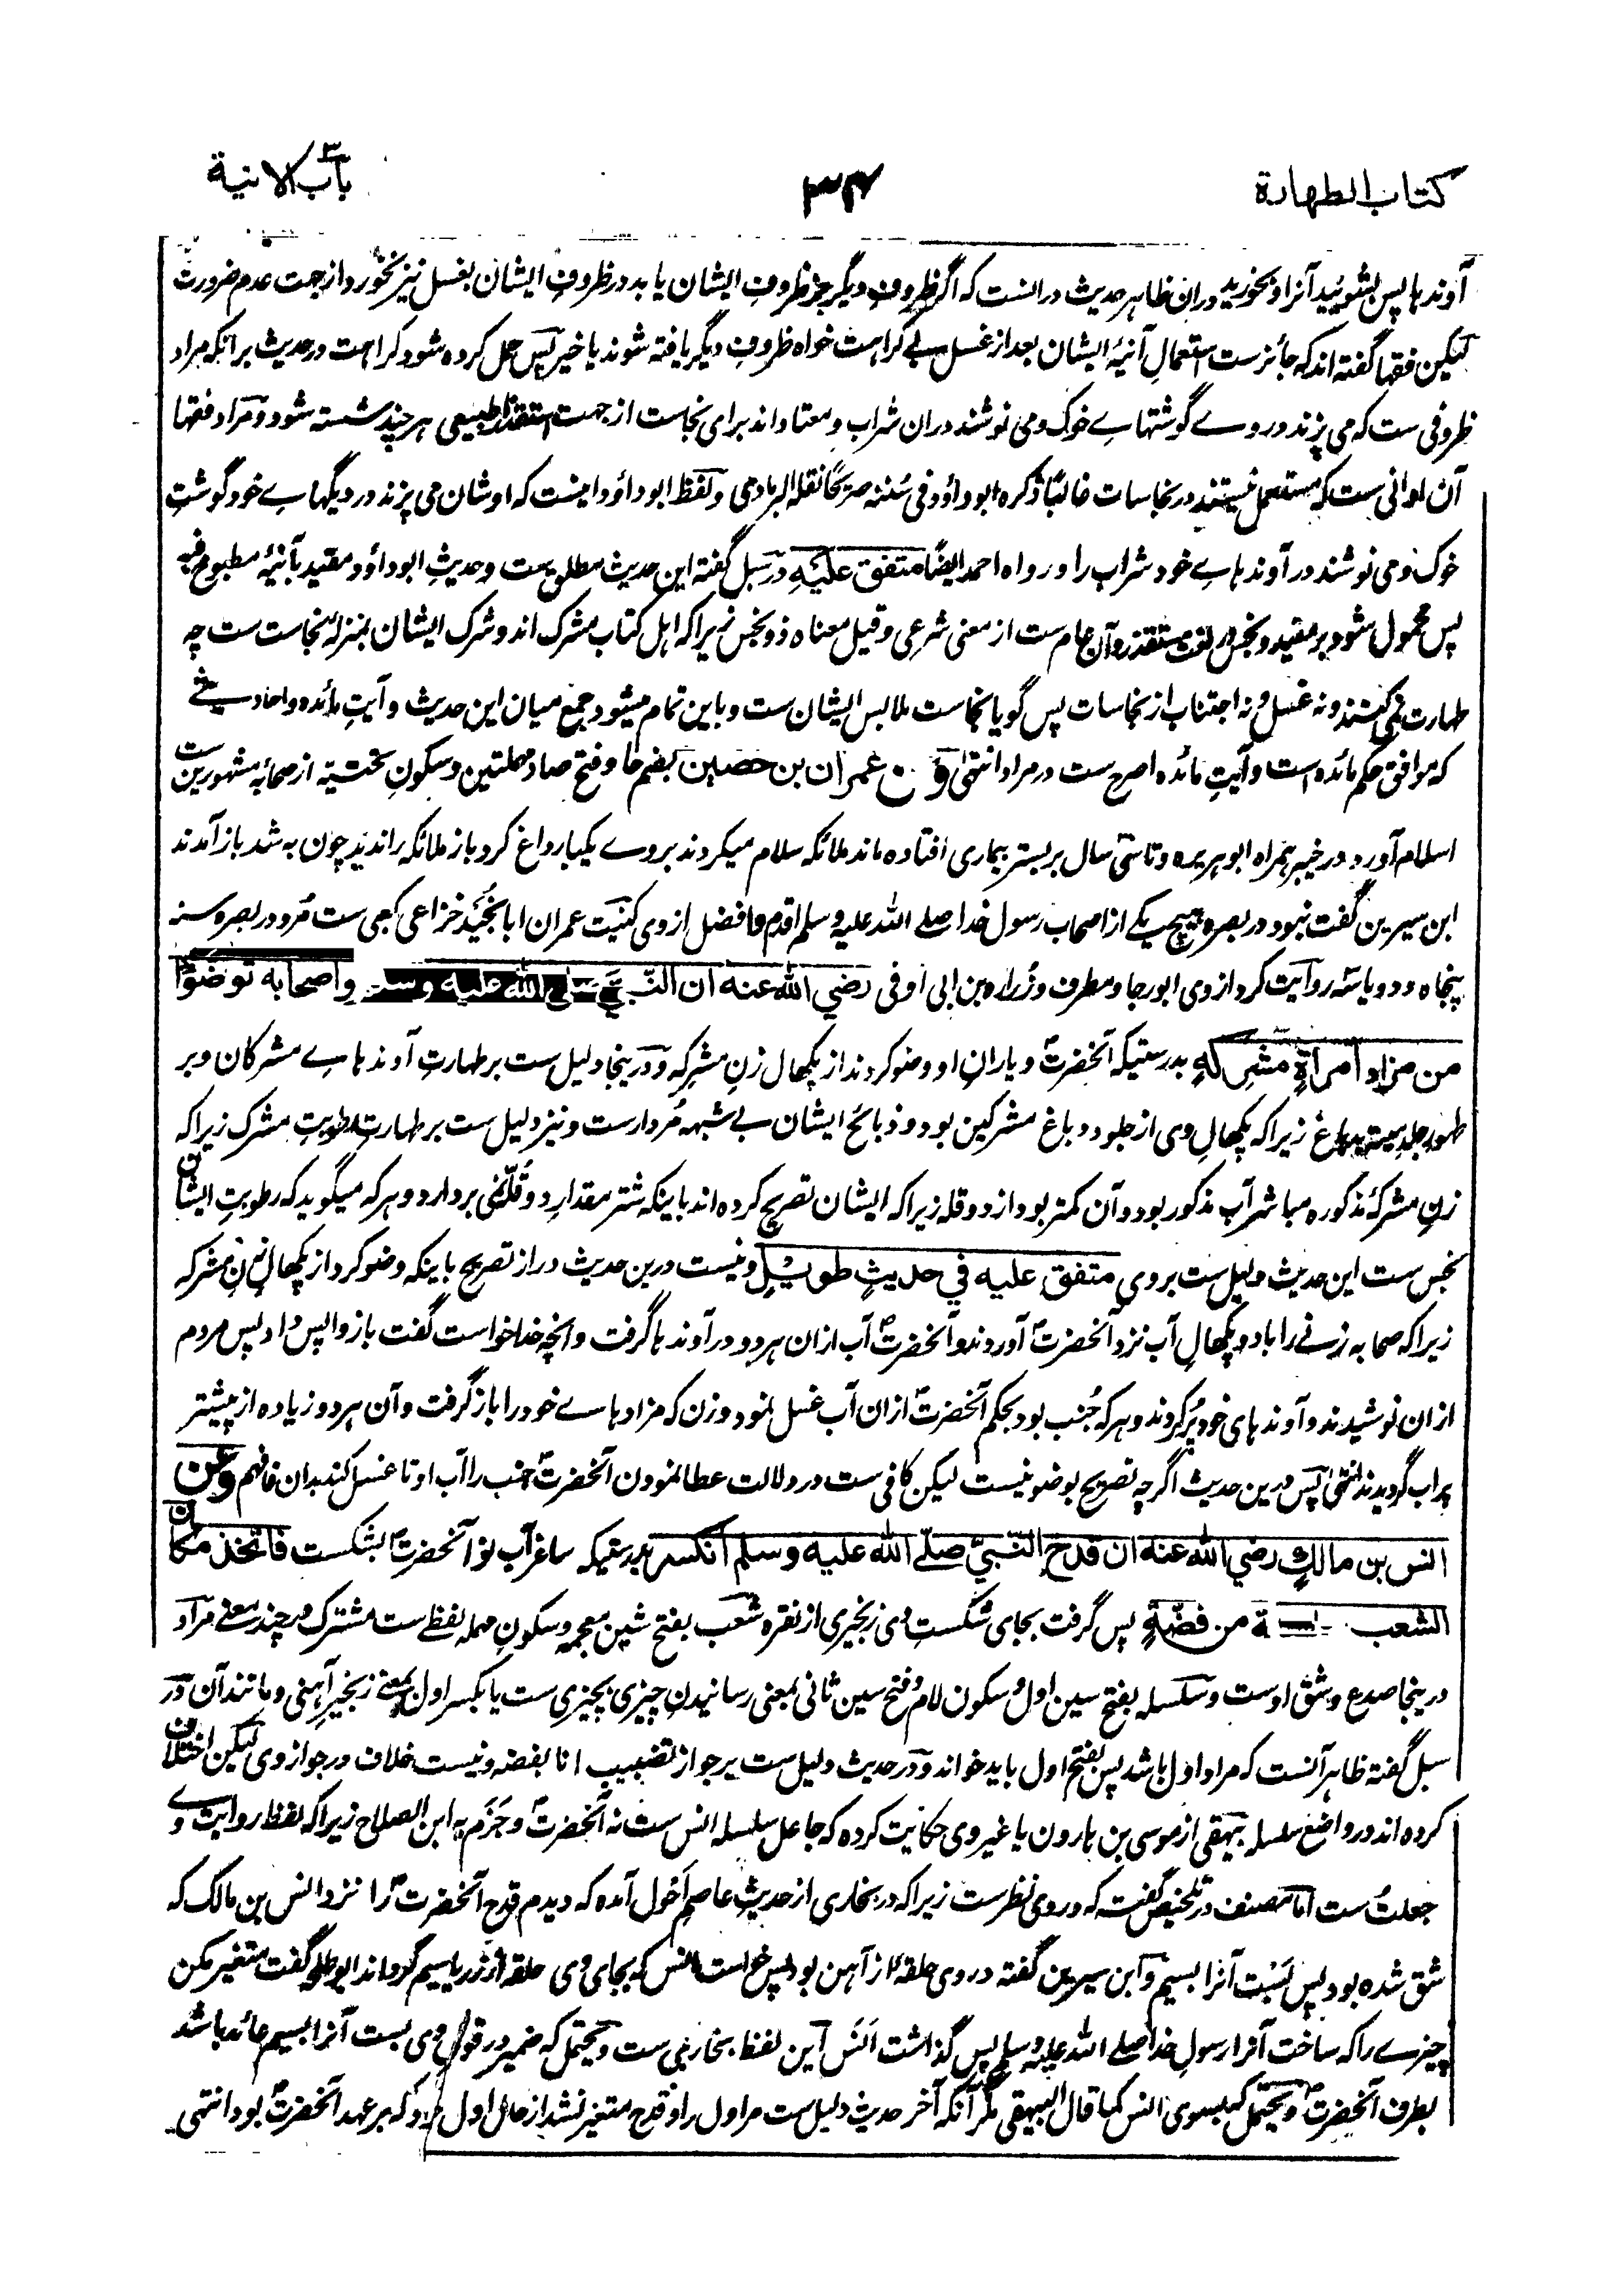 کتاب الطهارة
۳۴
باب الانیة
آوندها پس بشوئید آنرا و بخورید دران ظاهر حدیث در انست که اگر ظروف دیگر جز ظروف ایشان یابد در ظروف ایشان بغسل نیز نخورد از جهت عدم ضرورت
لیکن فقها گفته اند که جائزست استعمال آنیهٔ ایشان بعد از غسل بے کراهت خواه ظروف دیگر یافته شوند یا خیر پس حمل کرده شود کراهت در حدیث بر انکه مراد
ظروفی ست که می پزند در وے گوشتهاے خوک و می نوشند دران شراب و معتاد اند برای نجاست از جهت استقذار طبیعی هر چند شسته شود و مراد فقها
آن اوانی ست که مستعمل نیستند در نجاسات غالبًا ذکره ابو داؤد فی سننه صریحًا نقله البرمادی و لفظ ابو داؤد اینست که اوشان می پزند در دیگهاے خود گوشتِ
خوک و می نوشند در آوندهاے خود شراب را و رواه احمد ایضًا متفق علیه در سبل گفته این حدیث مطلق ست و حدیثِ ابو داؤد مقید بآنیهٔ مطبوخ فیه
پس محمول شود بر مقید و نجس در لغت مستقذر و آن عام ست از معنی شرعی و قیل معناه ذو نجس زیرا که اهل کتاب مشرک اند و شرک ایشان بمنزلهٔ نجاست ست چه
طهارت نمی کنند و نه غسل و نه اجتناب از نجاسات پس گویا نجاست ملابس ایشان ست و باین تمام میشود جمع میان این حدیث و آیتِ مائده و احادیثے
که موافق حکم مائده است و آیتِ مائده اصرح ست در مراد انتهیٰ و عن عمران بن حصین بضم حا و فتح صاد مهملتین و سکونِ تحتیه از صحابهٔ مشهورین ست
اسلام آورد در خیبر همراه ابوهریره و تا سی سال بر بستر بیماری افتاده ماند ملائکه سلام میکردند بروے یکبار داغ کرد باز ملائکه راندید چون به شد باز آمدند
ابن سیرین گفت نبود در بصره هیچ یکے از اصحاب رسول خدا صلے الله علیه و سلم اقدم و افضل ازوی کنیت عمران ابا نُجَید خزاعی کعبی ست مُرد در بصره سنه
پنجاه و دو یا سه روایت کرد ازوی ابو رجا و مطرف و زُراره بن ابی اوفی رضي الله عنه ان النّبيّ صلی الله علیه وسلم واصحابه توضّؤا
من مزادة امرأةٍ مشركةٍ بدرستیکه آنحضرتؐ و یارانِ او وضو کردند از پکهال زنِ مشرکه و درینجا دلیل ست بر طهارتِ آوندهاے مشرکان و بر
طهور جلد میته بدباغ زیرا که پکهالِ وی از جلود دباغ مشرکین بود و ذبائح ایشان بے شبهه مُردار ست و نیز دلیل ست بر طهارتِ رطوبتِ مشرک زیرا که
زنِ مشرکهٔ مذکوره مباشر آبِ مذکور بود و آن کمتر بود از دو قله زیرا که ایشان تصریح کرده اند باینکه شتر مقدارِ دو قُلّه نمی بردارد و هر که میگوید که رطوبتِ ایشان
نجس ست این حدیث دلیل ست بروی متفق علیه في حدیثٍ طویلٍ و نیست درین حدیث دراز تصریح باینکه وضو کرد از پکهالِ زنِ مشرکه
زیرا که صحابه زنے را با دو پکهالِ آب نزد آنحضرتؐ آوردند و آنحضرتؐ آب ازان هر دو در آوندها گرفت و انچه خدا خواست گفت باز واپس داد پس مردم
ازان نوشیدند و آوندهای خود پُر کردند و هر که جُنب بود بحکم آنحضرتؐ ازان آب غسل نمود و زن که مزادهاے خود را باز گرفت و آن هر دو زیاده از پیشتر
پر آب گردیدند انتهیٰ پس درین حدیث اگرچه تصریح بوضو نیست لیکن کافی ست در دلالت عطا نمودن آنحضرتؐ جنب را آب او تا غسل کند بدان فافهم وعن
انس بن مالكٍ رضي الله عنه ان قدح النّبيّ صلّے الله علیه وسلم انكسر بدرستیکه ساغرِ آب نوز آنحضرتؐ بشکست فاتخذ مکان
الشعب سلسلة من فضّةٍ پس گرفت بجای شکستِ وی زنجیری از نقره شعب بفتح شین معجمه و سکونِ مهمله لفظے ست مشترک در چند معنے مراد
درینجا صدع و شق اوست و سلسله بفتح سین اول و سکون لام و فتح سین ثانی بمعنی رسانیدنِ چیزی بچیزی ست یا بکسر اول بمعنے زنجیرِ آهنی و مانند آن و در
سبل گفته ظاهر آنست که مراد اول باشد پس بفتح اول باید خواند و در حدیث دلیل ست بر جواز تضبیبِ انا بفضه و نیست خلاف در جواز وی لیکن اختلاف
کرده اند در واضع سلسله بیهقی از موسی بن هارون یا غیر وی حکایت کرده که جاعل سلسله انس ست نه آنحضرتؐ و جَزَم به ابن الصلاح زیرا که لفظ روایت وے
جعلتُ ست اما مصنف در تلخیص گفته که در وی نظرست زیرا که در بخاری از حدیثِ عاصمِ اَحْوَل آمده که دیدم قدحِ آنحضرتؐ را نزد انس بن مالک که
شق شده بود پس بَست آنرا بسیم و ابن سیرین گفته در وی حلقهٔ از آهن بود پس خواست انس که بجای وی حلقهٔ از زر یا سیم گرداند ابو طلحه گفت متغیر مکن
چیزے را که ساخت آنرا رسولِ خدا صلے الله علیه و سلم پس گذاشت اَنَس این لفظ بخاری ست و محتمل که ضمیر در قول وی بست آنرا بسیم عائد باشد
بطرف آنحضرتؐ و محتمل که بسوی انس کما قال البیهقی مگر آنکه آخر حدیث دلیل ست مر اول را و قدح متغیر نشد از حالِ اول که بر عهد آنحضرتؐ بود انتهی